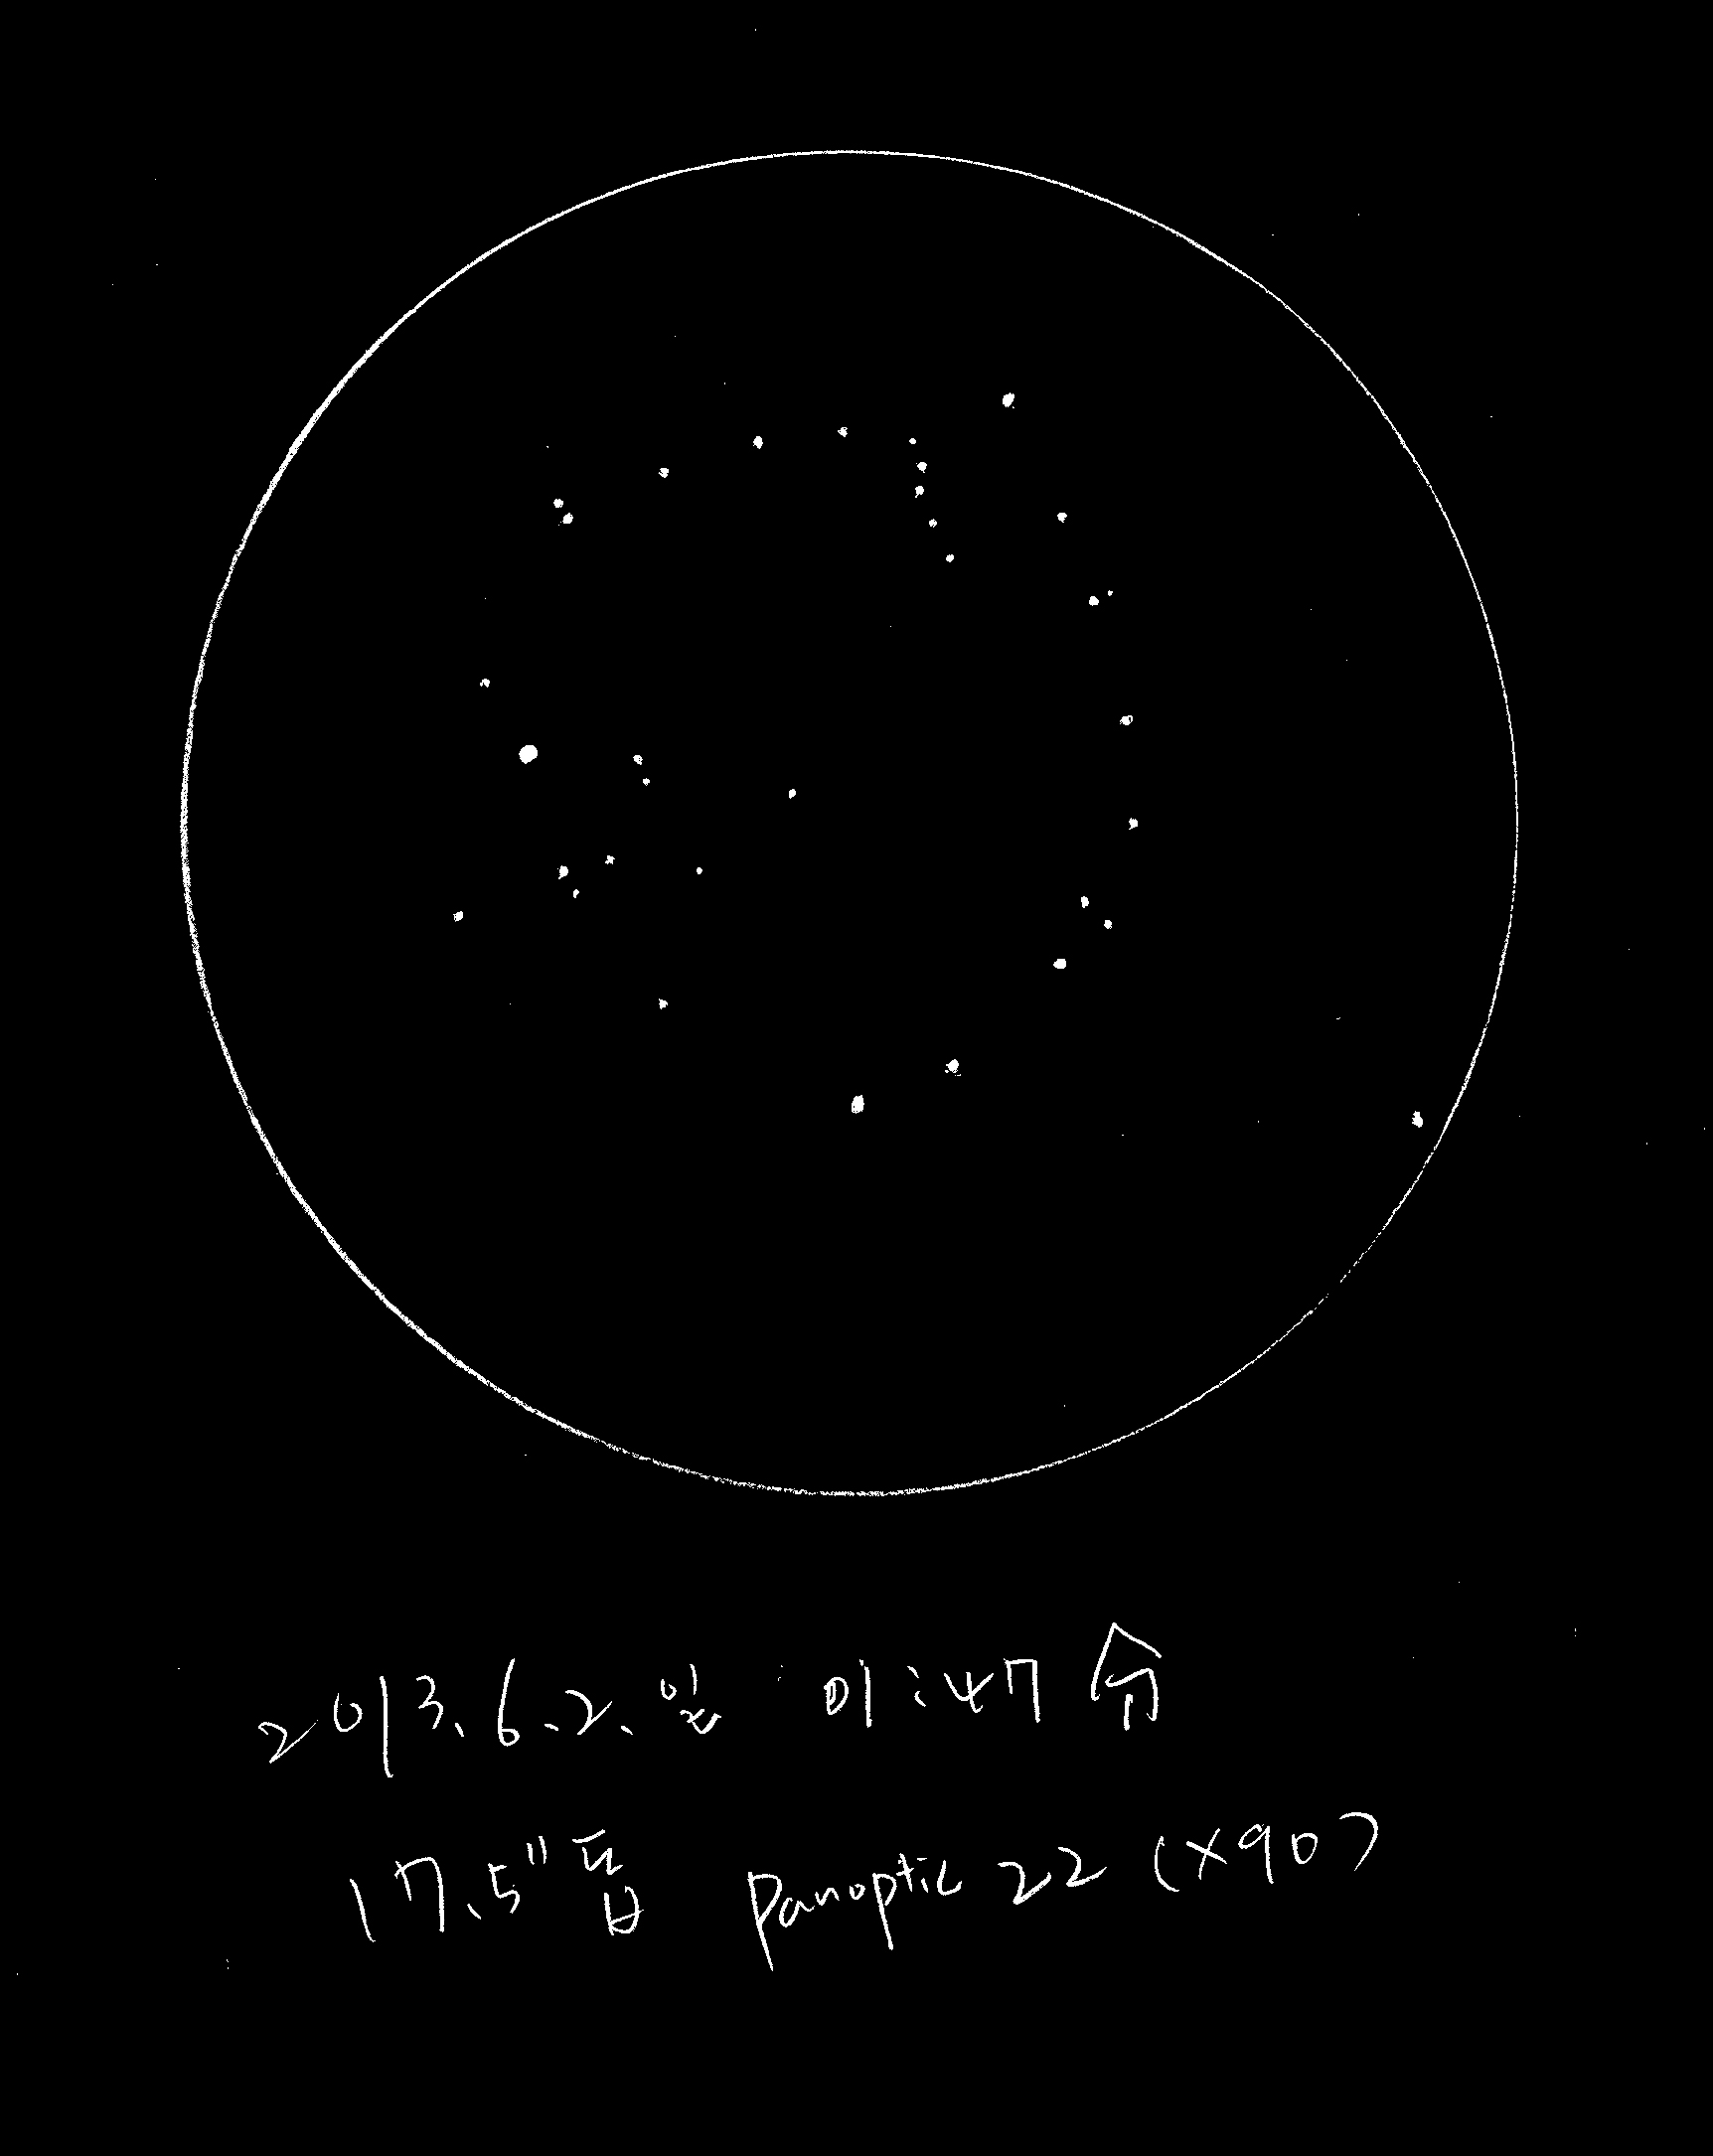 2013.6.2.일 01:47分
17.5"돕 Panoptic 22 (x90)